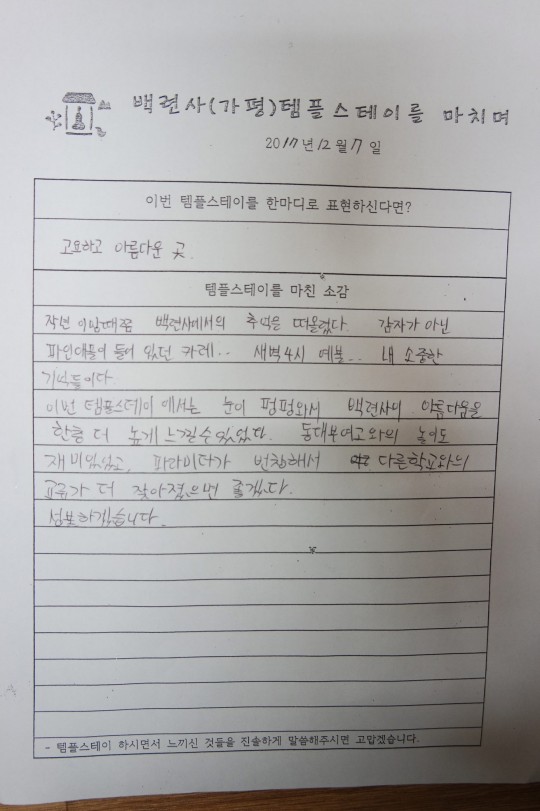 백련사(가평)템플스테이를 마치며
2017년 12월 17일
이번 템플스테이를 한마디로 표현하신다면?
고요하고 아름다운 곳.
템플스테이를 마친 소감
작년 이맘때쯤 백련사에서의 추억을 떠올렸다. 감자가 아닌
파인애플이 들어 있던 카레.. 새벽4시 예불... 내 소중한
기억들이다.
이번 템플스테이에서는 눈이 펑펑와서 백련사의 아름다움을
한층 더 높게 느낄수있었다. 동대부여고와의 놀이도
재미있었고, 파라미타가 번창해서 다른학교와의
교류가 더 잦아졌으면 좋겠다.
성불하겠습니다.
- 템플스테이 하시면서 느끼신 것들을 진솔하게 말씀해주시면 고맙겠습니다.